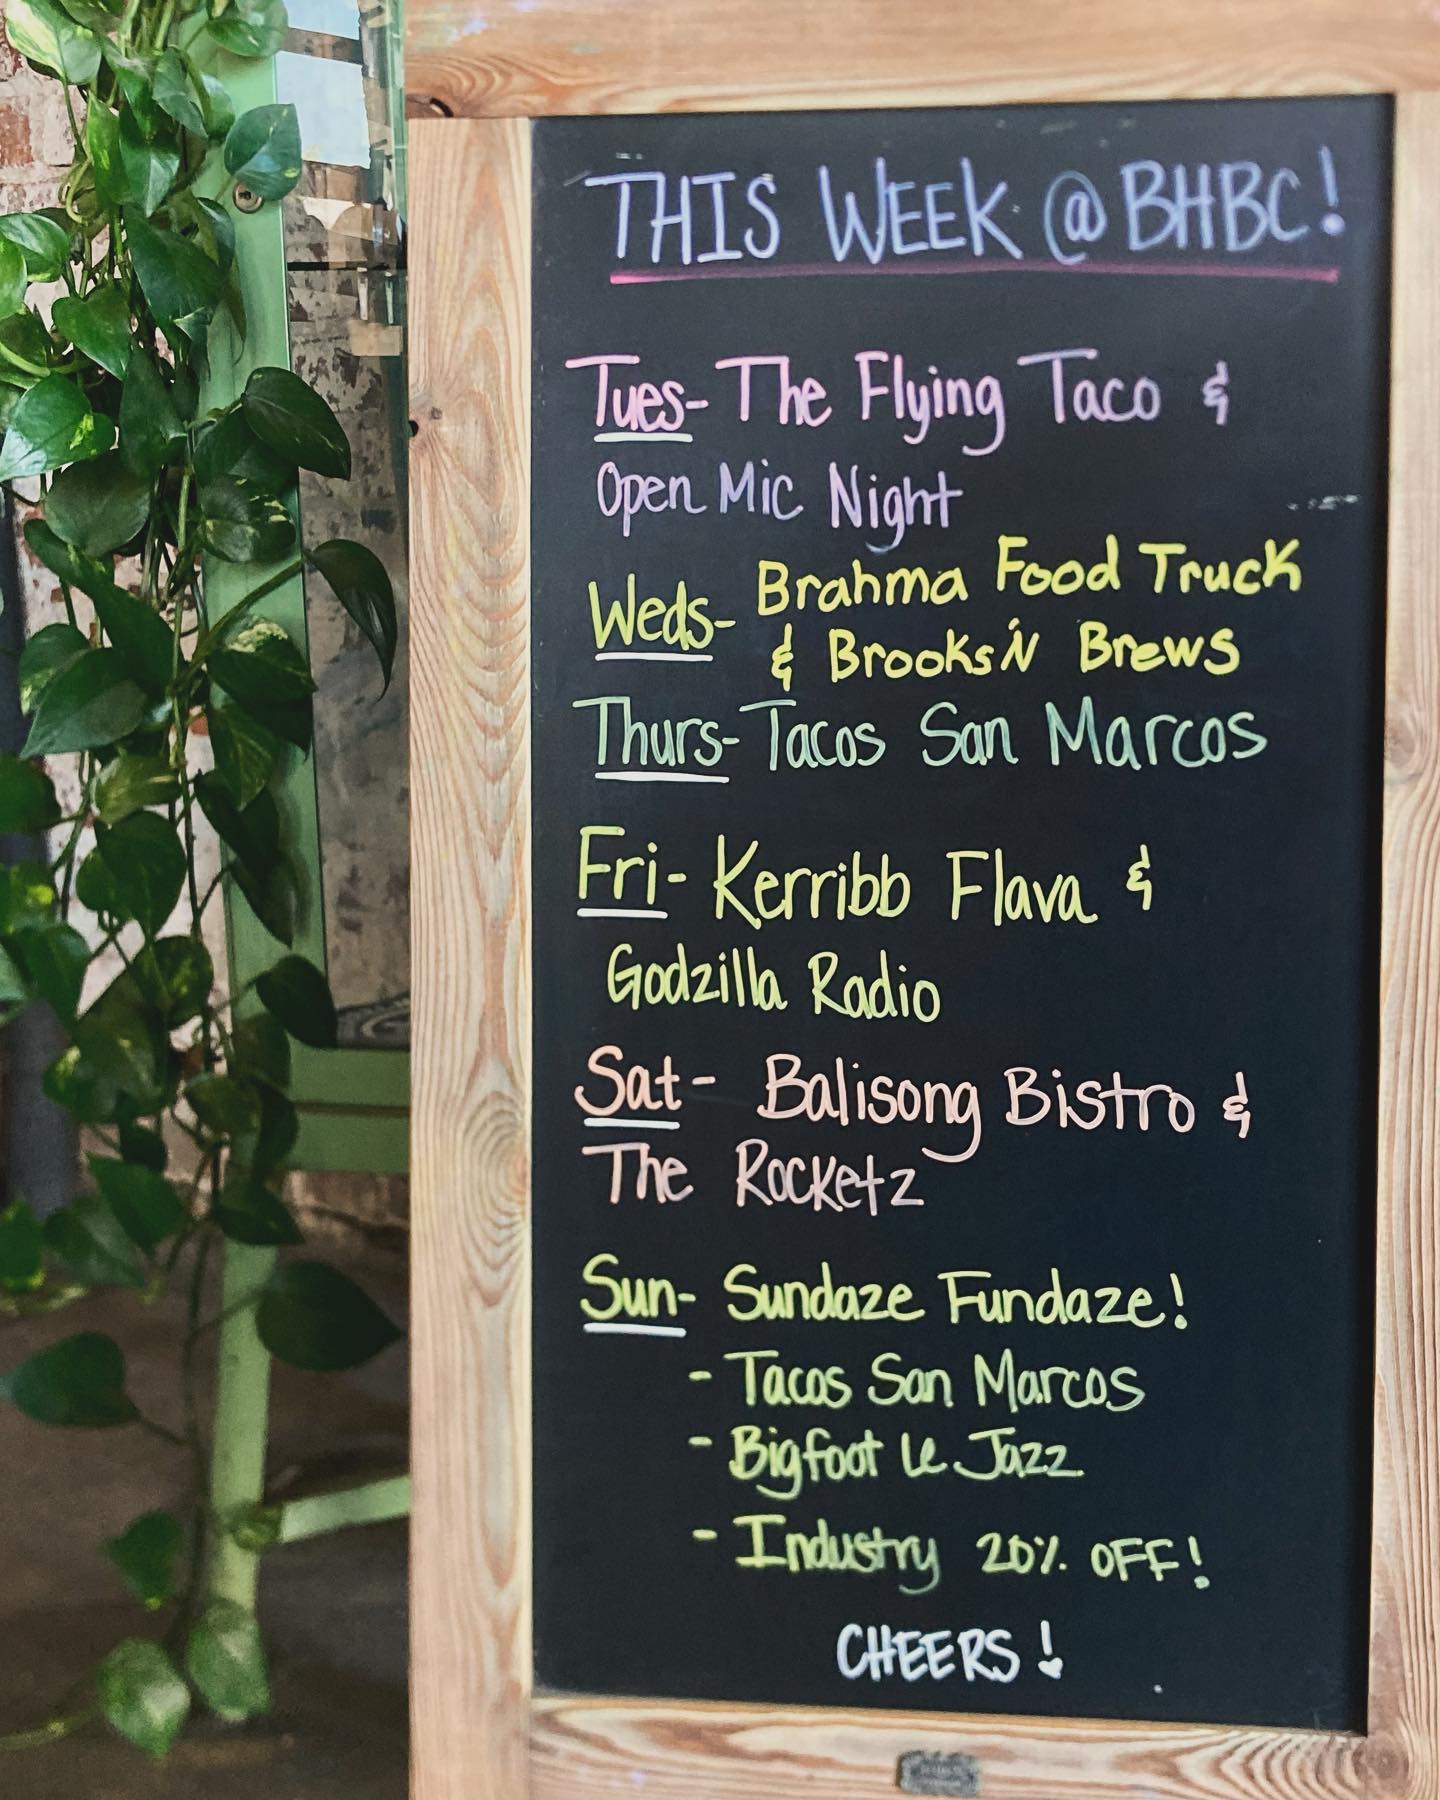 THIS WEEK @ BHBC!
Tues- The Flying Taco &
Open Mic Night
Weds- Brahma Food Truck
& Brooks 'N Brews
Thurs- Tacos San Marcos
Fri- Kerribb Flava &
Godzilla Radio
Sat- Balisong Bistro &
The Rocketz
Sun- Sundaze Fundaze!
- Tacos San Marcos
- Bigfoot Le Jazz
- Industry 20% OFF!
CHEERS!